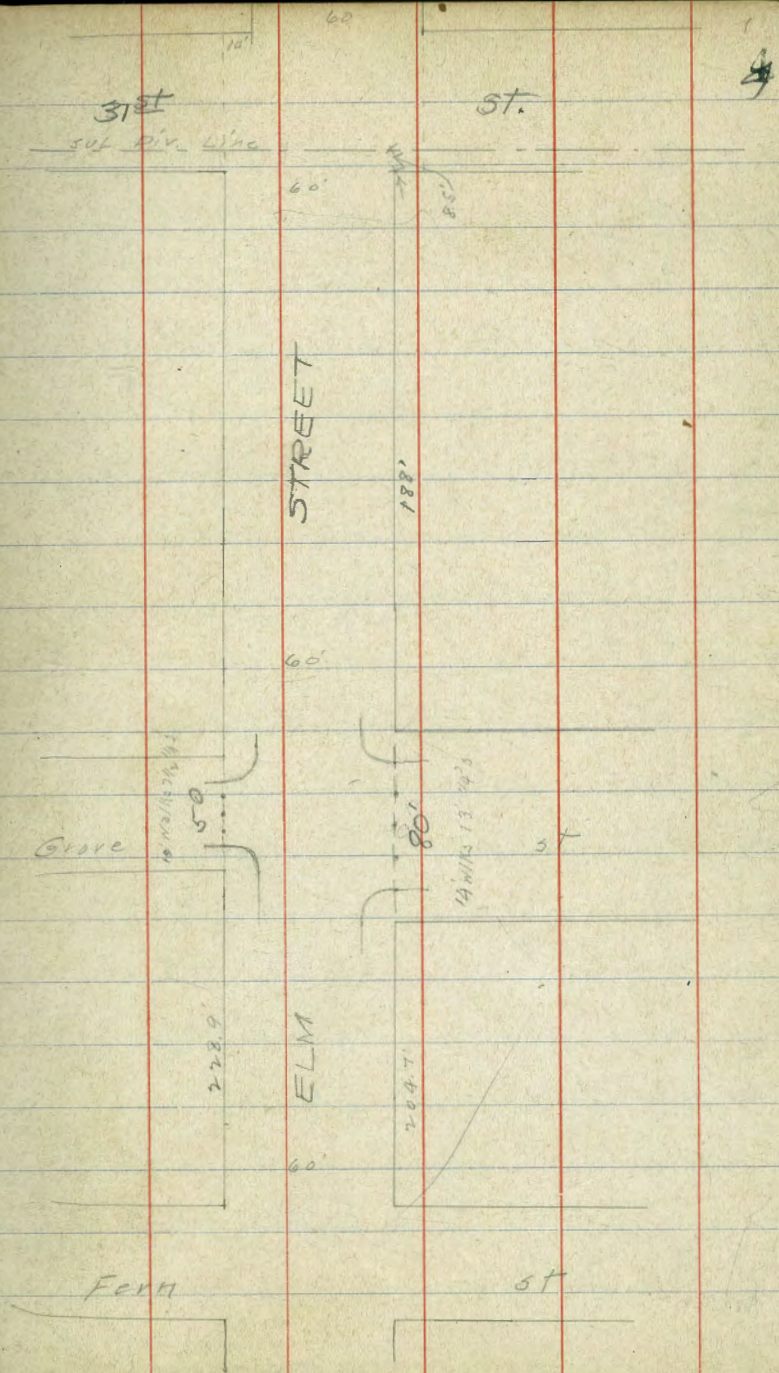 60
10'
4
31st St.
Sub Div. Line
60'
8.5'
STREET
188'
60'
50
80'
Grove st
228.9'
ELM
204.7'
60'
Fern st